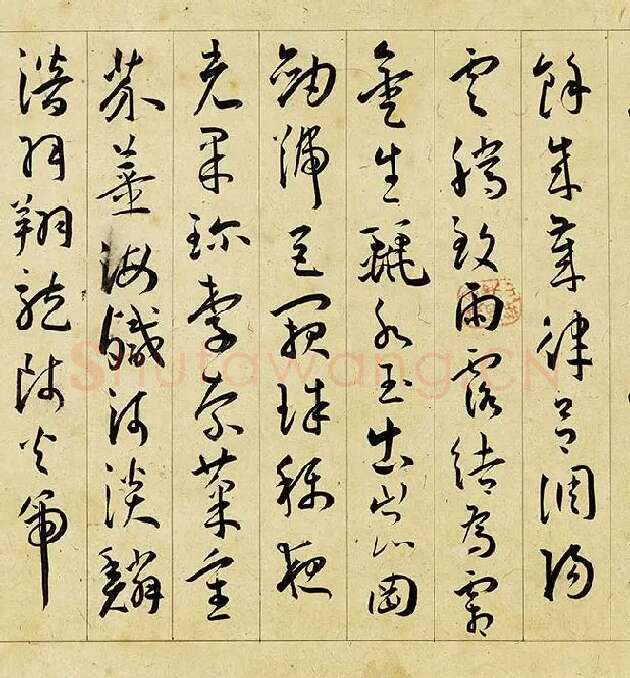 餘成歲律呂調陽
雲騰致雨露結為霜
金生麗水玉出崑岡
劍號巨闕珠稱夜
光果珍李柰菜重
芥薑海鹹河淡鱗
潛羽翔龍師火帝
Shufawang.CN